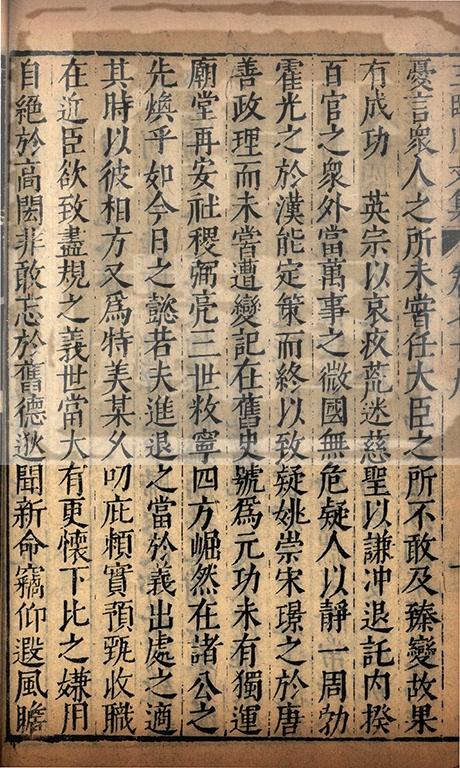 憂言衆人之所未嘗任大臣之所不敢及臻變故果
有成功　英宗以哀疚荒迷慈聖以謙冲退託内揆
百官之衆外當萬事之微國無危疑人以靜一周勃
霍光之於漢能定策而終以致疑姚崇宋璟之於唐
善政理而未嘗遭變記在舊史號爲元功未有獨運
廟堂再安社稷弼亮三世敉寧四方崛然在諸公之
先煥乎如今日之懿若夫進退之當於義出處之適
其時以彼相方又爲特美某久叨庇頼實預甄收職
在近臣欲致盡規之義世當大有更懷下比之嫌用
自絶於高閎非敢忘於舊德逖聞新命竊仰遐風瞻